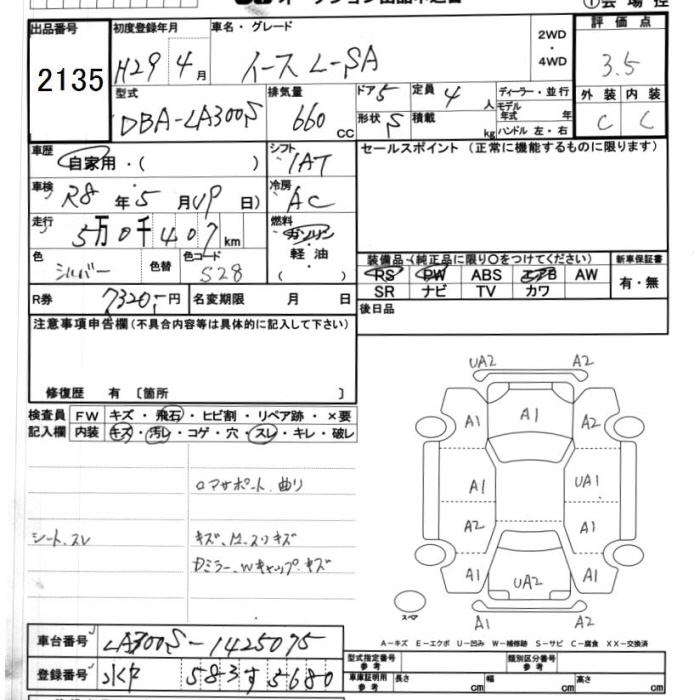 出品番号
2135
初度登録年月
H29年4月
車名・グレード
イース L-SA
2WD
・
4WD
評価点
3.5
外装 内装
C C
型式
DBA-LA300S
排気量
660 CC
ドア 5
定員 4 人
形状 S
積載 kg
ディーラー・並行
モデル年式 年
ハンドル 左・右
車歴
自家用・( )
シフト
IAT
セールスポイント (正常に機能するものに限ります)
車検
R8年5月(19日)
冷房
AC
走行
5万0千407km
燃料
ガソリン
・
軽油
( )
色
シルバー
色替
色コード
S28
装備品 (純正品に限り○をつけてください)
新車保証書
RS PW ABS エアB AW
SR ナビ TV カワ
有・無
R券 7320円
名変期限 月 日
後日品
注意事項申告欄(不具合内容等は具体的に記入して下さい)
修復歴 有 〔箇所 〕
検査員記入欄
FW キズ・飛石・ヒビ割・リペア跡・×要
内装 キズ・汚レ・コゲ・穴・スレ・キレ・破レ
ロアサポート曲り
シート、スレ
Dミラー、Wキャップ、キズ
UA2 A2
A1
A1 A2
A1 UA1
A2 A1
A1 UA2 A1
スペア
A1 A2
A-キズ E-エクボ U-凹み W-補修跡 S-サビ C-腐食 XX-交換済
車台番号
LA300S-1425075
登録番号
583 す 5680
型式指定番号
参考
類別区分番号
参考
車庫証明用
参考
長さ cm
幅 cm
高さ cm